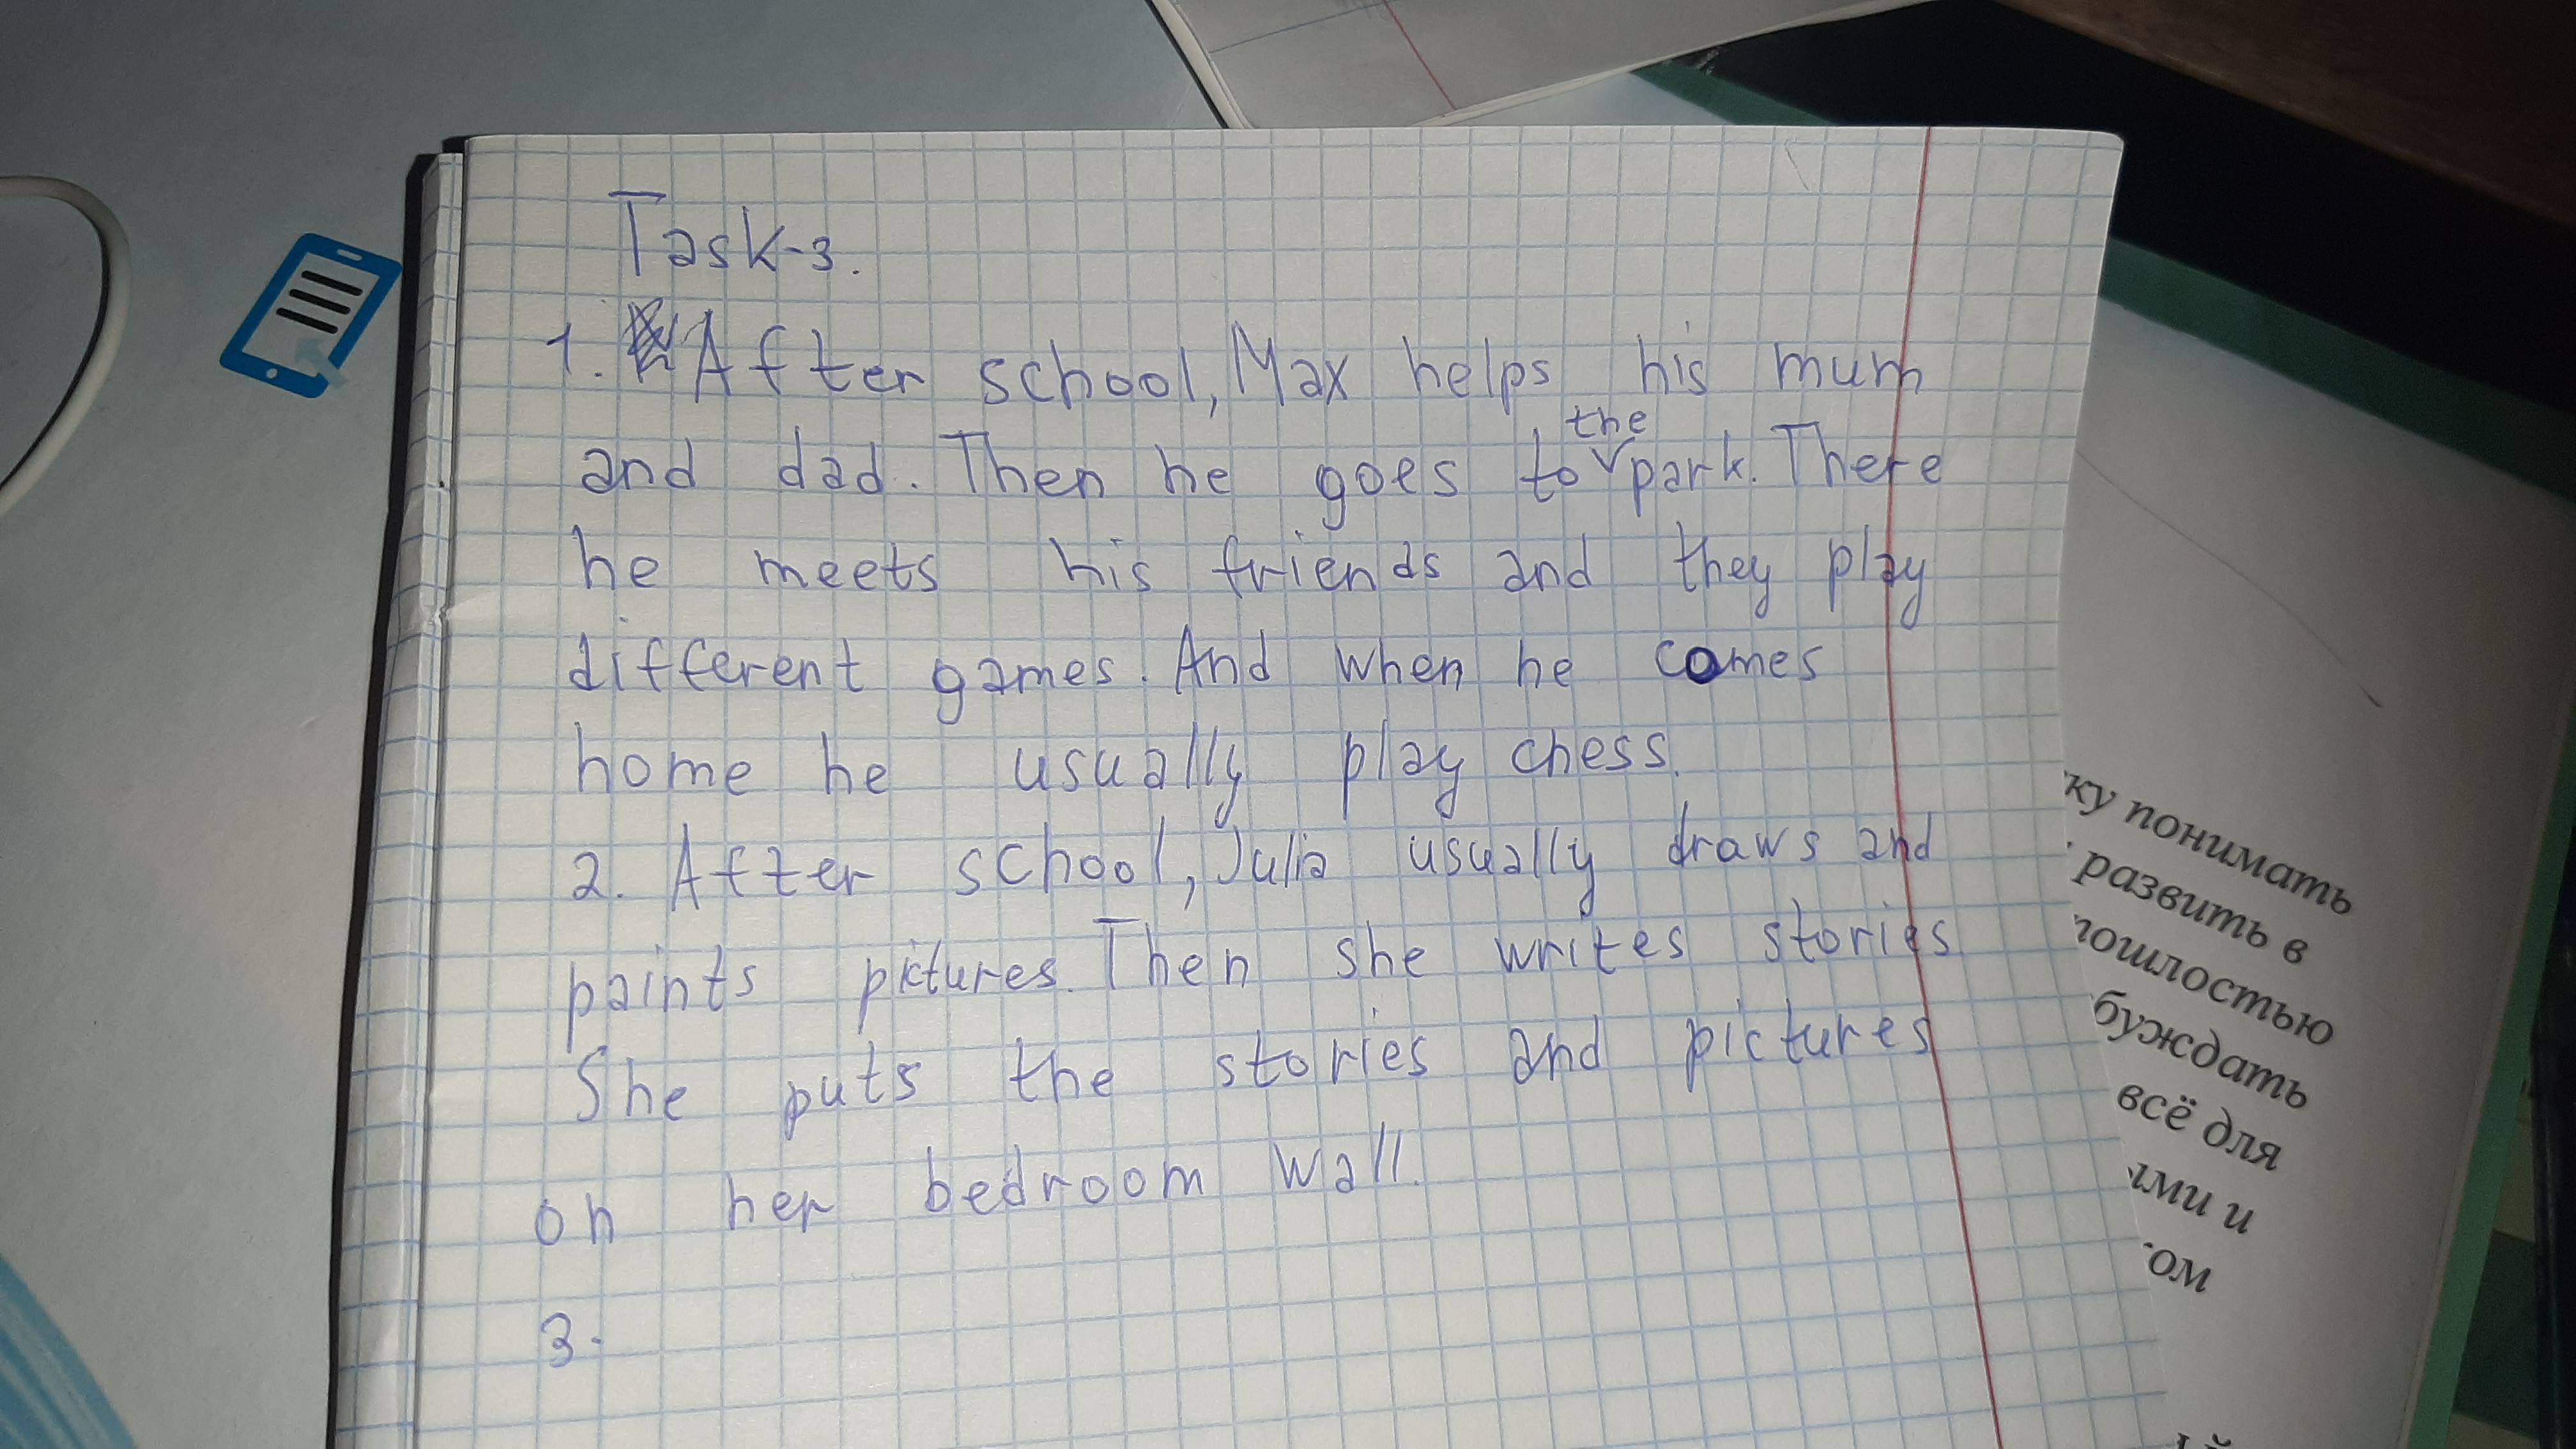 Task-3.
1. After school, Max helps his mum
and dad. Then he goes to the park. There
he meets his friends and they play
different games. And when he comes
home he usually play chess.
2. After school, Julia usually draws and
paints pictures. Then she writes stories
She puts the stories and pictures
on her bedroom wall.
3.
ку понимать
развить в
пошлостью
буждать
всё для
ими и
том